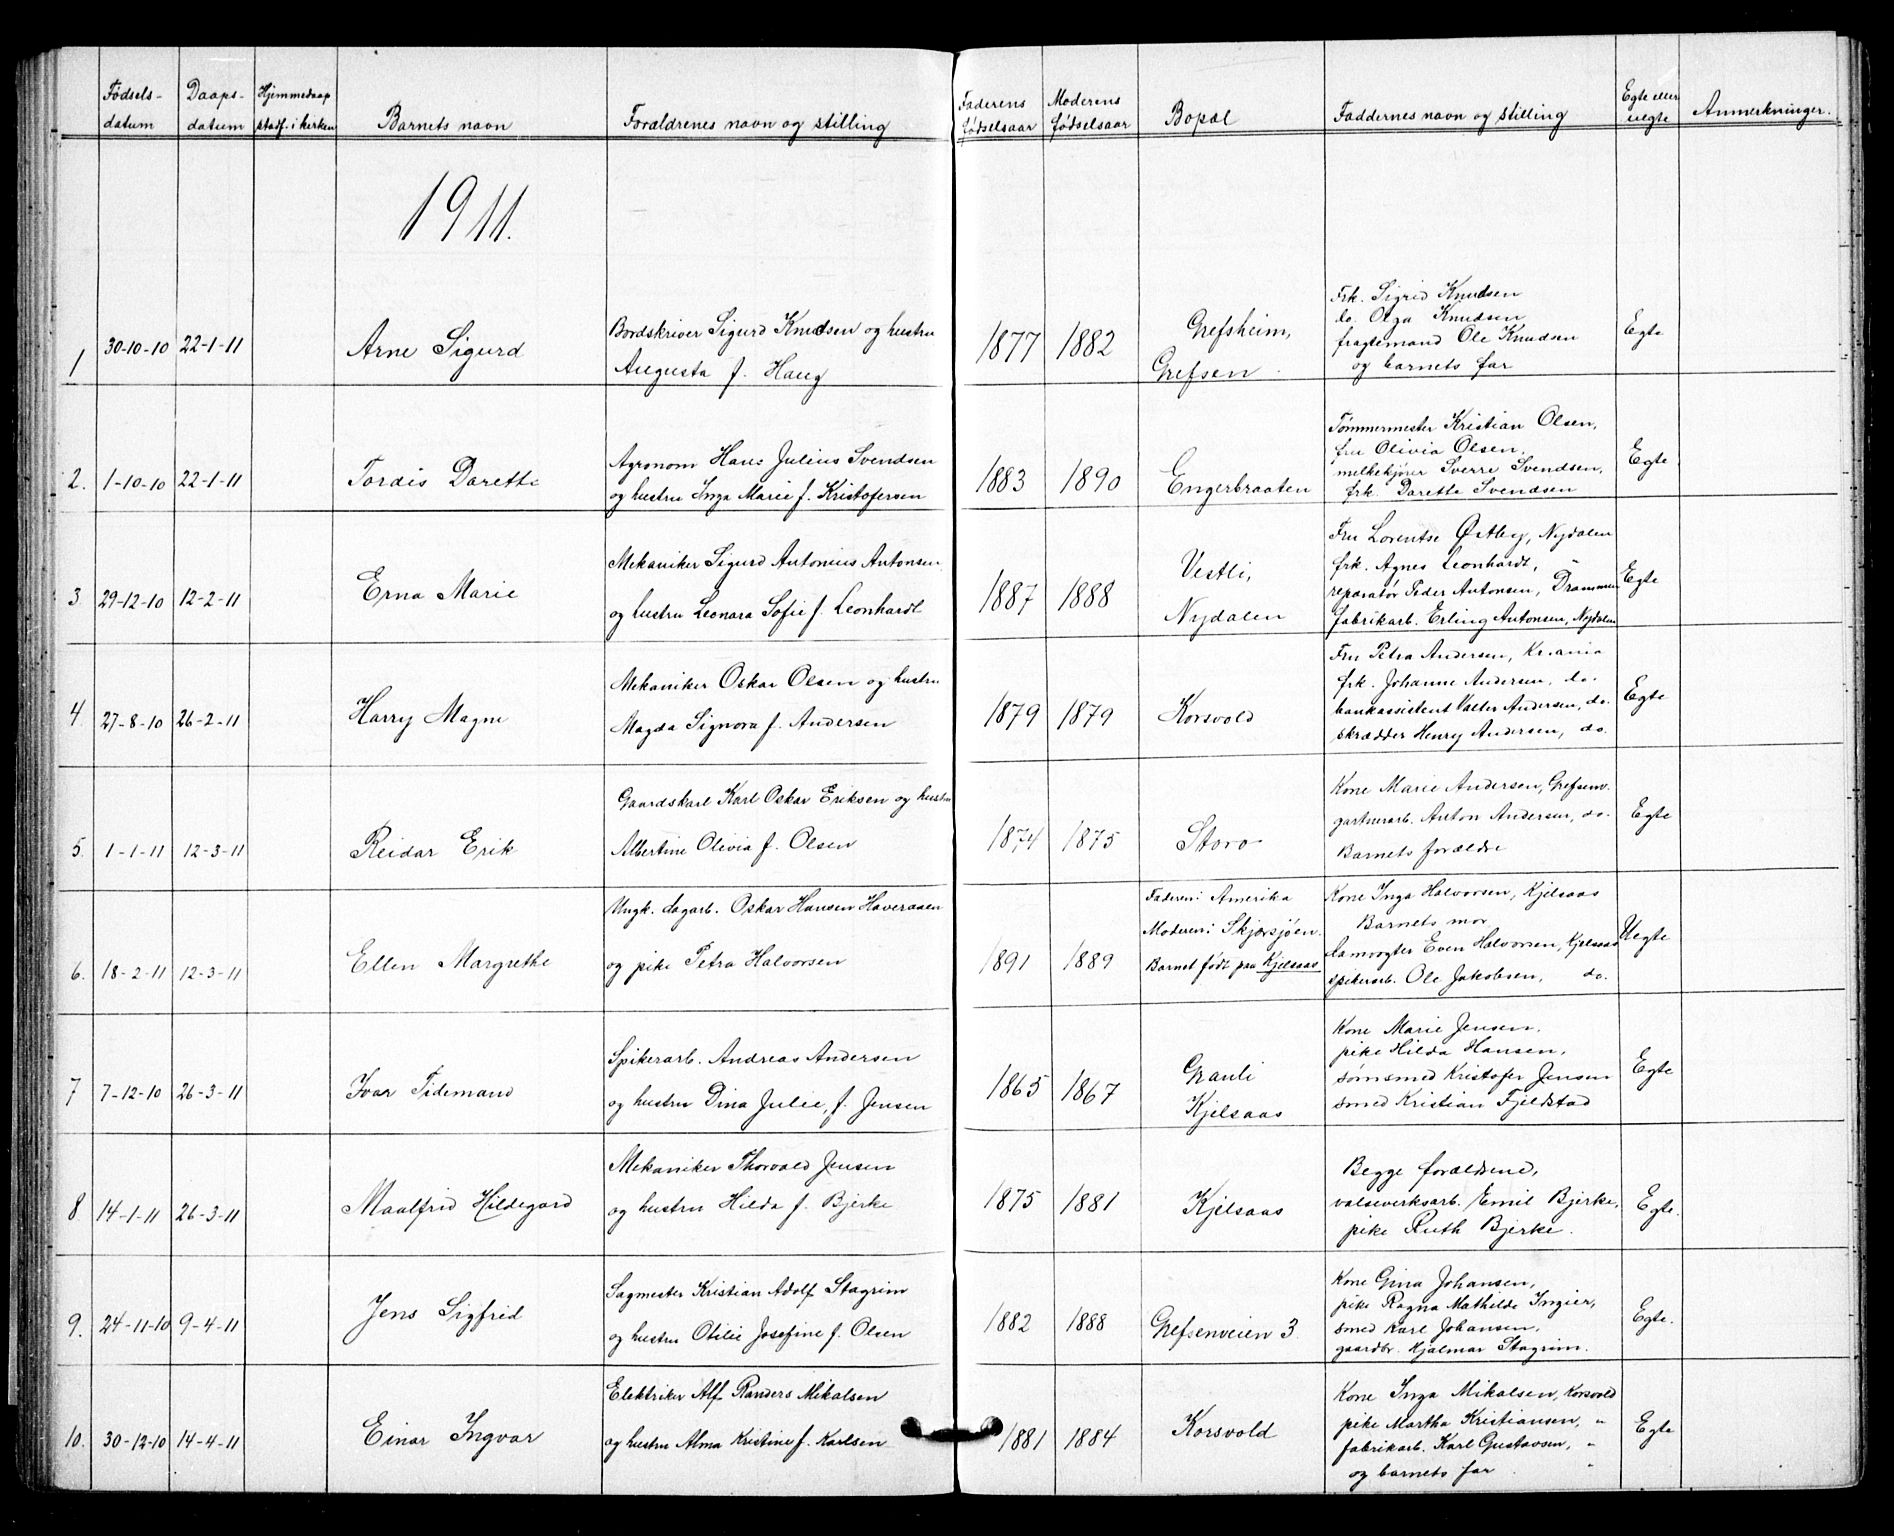 Fødsels- datum | Daaps- datum | Hjemmedaap stadf. i kirken | Barnets navn | Forældrenes navn og stilling | Faderens fødselsaar | Moderens fødselsaar | Bopæl | Faddernes navn og stilling | Egte eller uegte | Anmerkninger.
1911.
1 | 30-10-10 | 22-1-11 | Arne Sigurd
Bordskriver Sigurd Knudsen og hustru
Augusta f. Haug
1877 | 1882
Grefsheim,
Grefsen.
Frk. Sigrid Knudsen
do. Olga Knudsen
fragtemand Ole Knudsen
og barnets far
Egte
2. | 1-10-10 | 22-1-11 | Tordis Dorette
Agronom Hans Julius Svendsen
og hustru Inga Marie f. Kristofersen
1883 | 1890
Engerbraaten
Tømmermester Kristian Olsen,
fru Olivia Olsen,
melkekjører Sverre Svendsen,
frk. Dorette Svendsen
Egte
3 | 29-12-10 | 12-2-11 | Erna Marie
Mekaniker Sigurd Antonius Antonsen
og hustru Leonara Sofie f. Leonhardt
1887 | 1888
Vestli,
Nydalen
Fru Lorentse Østby, Nydalen
frk. Agnes Leonhardt, "
reparatør Peder Antonsen, Drammen
fabrikarb. Erling Antonsen, Nydalen
Egte
4. | 27-8-10 | 26-2-11 | Harry Magne
Mekaniker Oskar Olsen og hustru
Magda Signora f. Andersen
1879 | 1879
Korsvold
Fru Petra Andersen, Kr.ania
frk. Johanne Andersen, do.
bankassistent Valter Andersen, do.
skrædder Henry Andersen, do.
Egte
5. | 1-1-11 | 12-3-11 | Reidar Erik
Gaardskarl Karl Oskar Eriksen og hustru
Albertine Olivia f. Olsen
1874 | 1875
Storo
Kone Marie Andersen, Grefsenv.
gartnerarb. Anton Andersen, do.
Barnets forældre
Egte
6. | 18-2-11 | 12-3-11 | Ellen Margrethe
Ungk. dagarb. Oskar Hansen Haveraaen
og pike Petra Halvorsen
1891 | 1889
Faderen: Amerika
Moderen: Skjærsjøen.
Barnet født paa Kjelsaas
Kone Inga Halvorsen, Kjelsaas
Barnets mor
damvogter Even Halvorsen, Kjelsaas
spikerarb. Ole Jakobsen, do.
Uegte
7 | 7-12-10 | 26-3-11 | Ivar Tidemand
Spikerarb. Andreas Andersen
og hustru Dina Julie, f. Jensen
1865 | 1867
Granli
Kjelsaas
Kone Marie Jensen,
pike Hilda Hansen,
sømsmed Kristofer Jensen
smed Kristian Fjeldstad
Egte
8 | 14-1-11 | 26-3-11 | Maalfrid Hildegard
Mekaniker Thorvald Jensen
og hustru Hilda f. Bjerke
1875 | 1881
Kjelsaas
Begge forældrene,
valseverksarb. Emil Bjerke,
pike Ruth Bjerke.
Egte.
9. | 24-11-10 | 9-4-11 | Jens Sigfred
Sagmester Kristian Adolf Stagrim
og hustru Otilie Josefine f. Olsen
1882 | 1888
Grefsenveien 3
Kone Gina Johansen,
pike Ragna Mathilde Ingier,
smed Karl Johansen,
gaardbr. Hjalmar Stagrim.
Egte.
10. | 30-12-10 | 14-4-11 | Einar Ingvar
Elektriker Alf Randers Mikalsen
og hustru Alma Kristine f. Karlsen
1881 | 1884
Korsvold
Kone Inga Mikalsen, Korsvold
pike Martha Kristiansen, "
fabrikarb. Karl Gustavsen, "
og barnets far. "
Egte